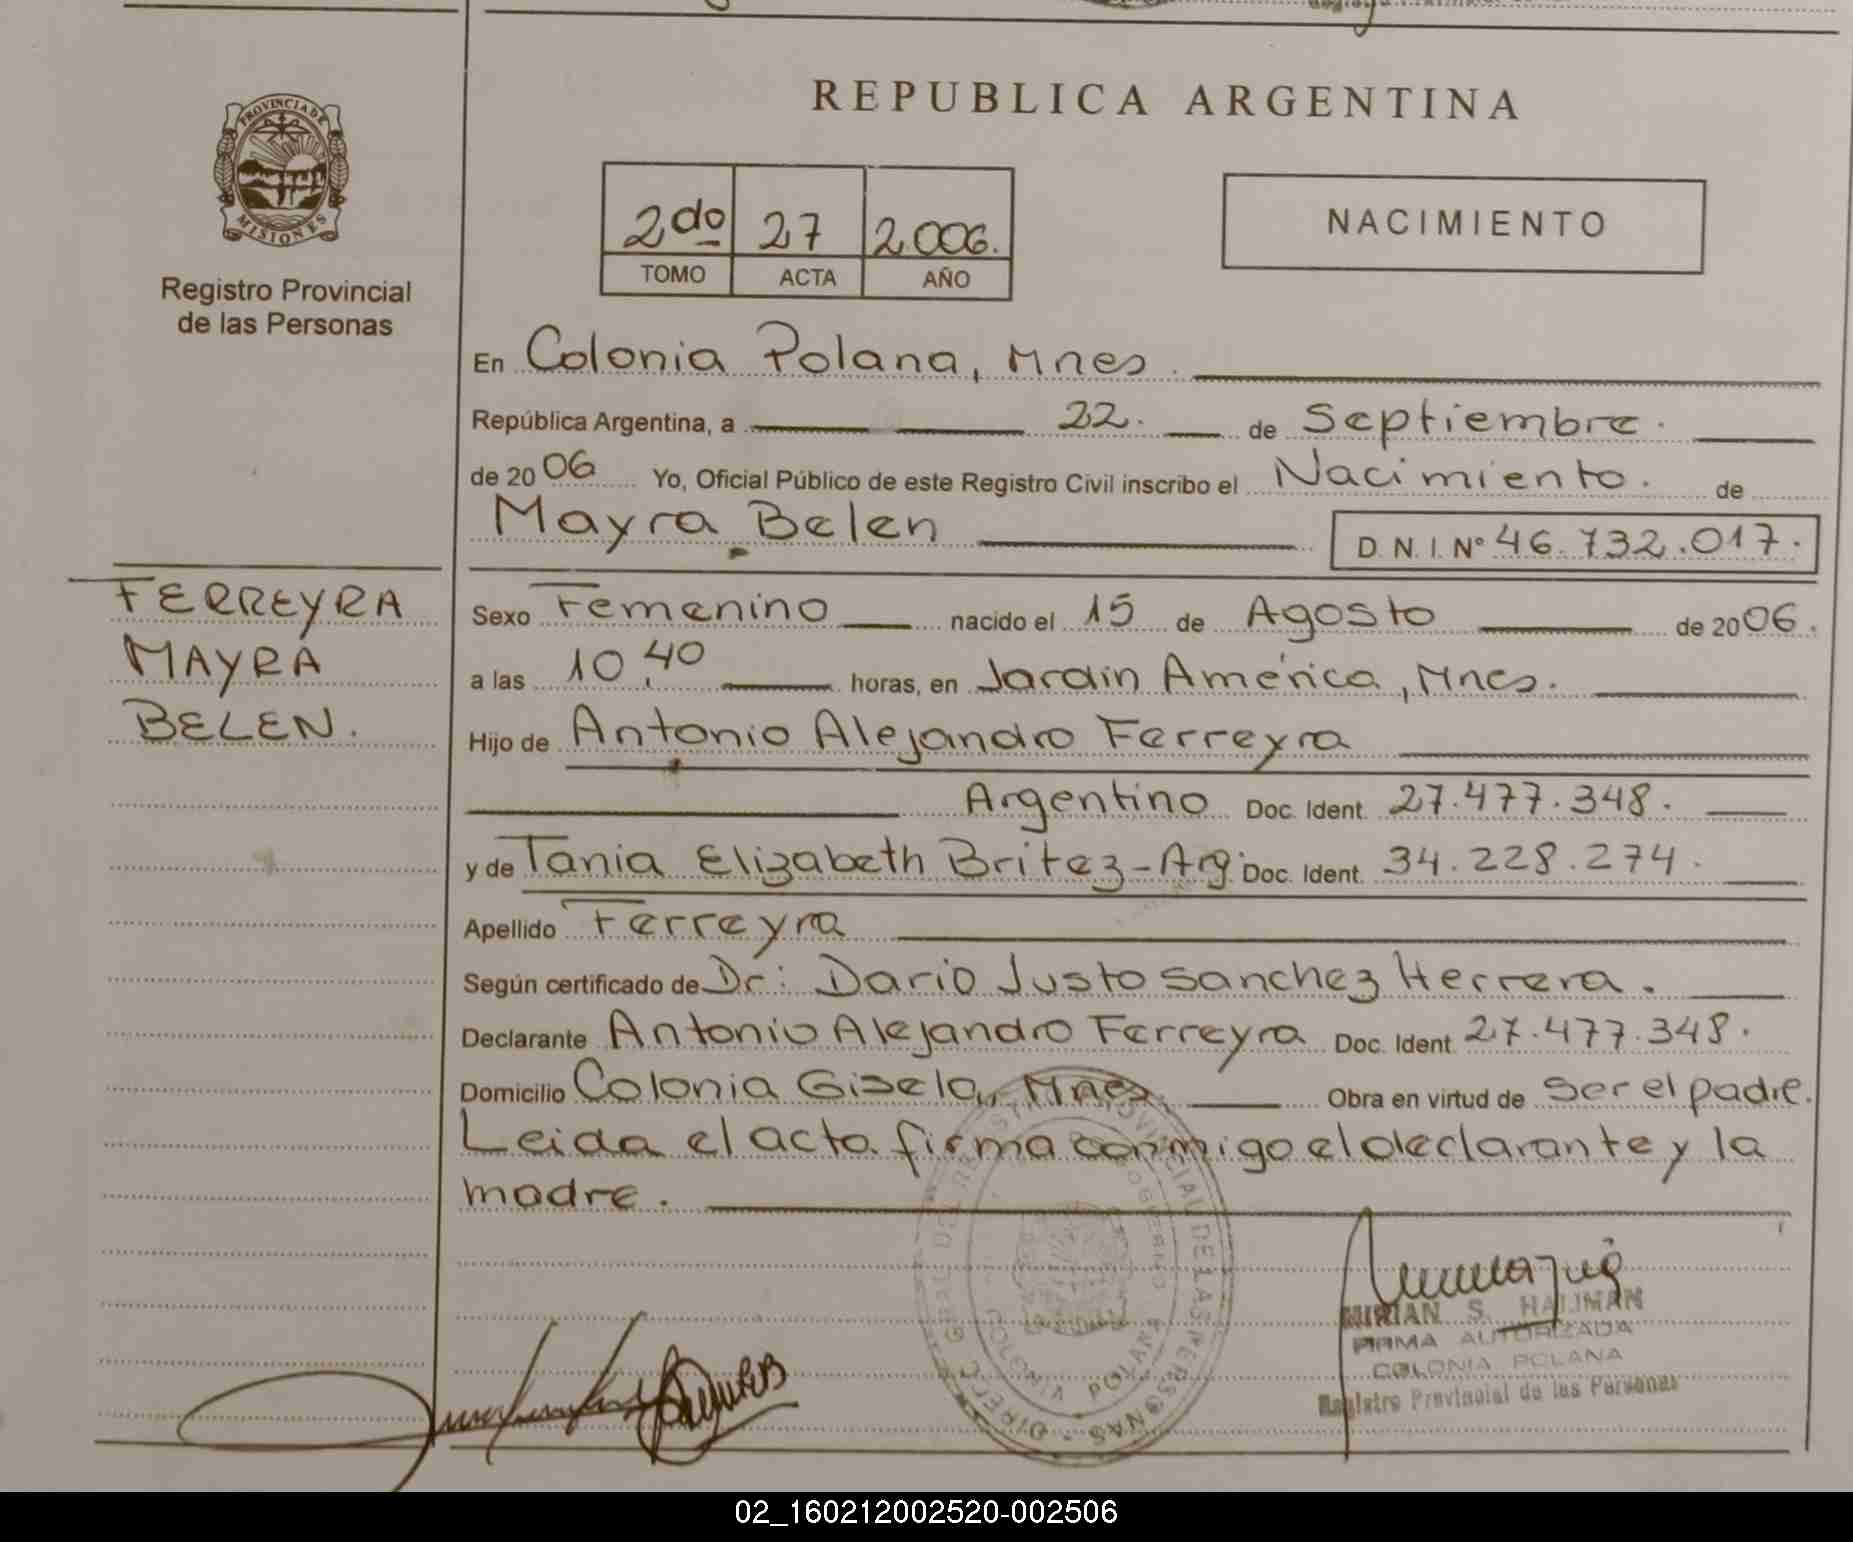 REPUBLICA ARGENTINA
PROVINCIA DE
MISIONES
Registro Provincial
de las Personas
2do 27 2.006.
TOMO ACTA AÑO
NACIMIENTO
En Colonia Polana, Mnes.
República Argentina, a 22. de Septiembre.
de 2006 Yo, Oficial Público de este Registro Civil inscribo el Nacimiento. de
Mayra Belen D.N.I. Nº 46.732.017.
FERREYRA
MAYRA
BELEN.
Sexo Femenino nacido el 15 de Agosto de 2006.
a las 10,40 horas, en Jardin América, Mnes.
Hijo de Antonio Alejandro Ferreyra
Argentino Doc. Ident. 27.477.348.
y de Tania Elizabeth Britez-Arg. Doc. Ident. 34.228.274.
Apellido Ferreyra
Según certificado de Dr: Dario Justo Sanchez Herrera.
Declarante Antonio Alejandro Ferreyra Doc. Ident 27.477.348.
Domicilio Colonia Gisela, Mnes. Obra en virtud de ser el padre.
Leida el acta firma conmigo el declarante y la
madre.
COLONIA POLANA
MIRIAN S. HALIMAN
FIRMA AUTORIZADA
COLONIA POLANA
Registro Provincial de las Personas
02_160212002520-002506